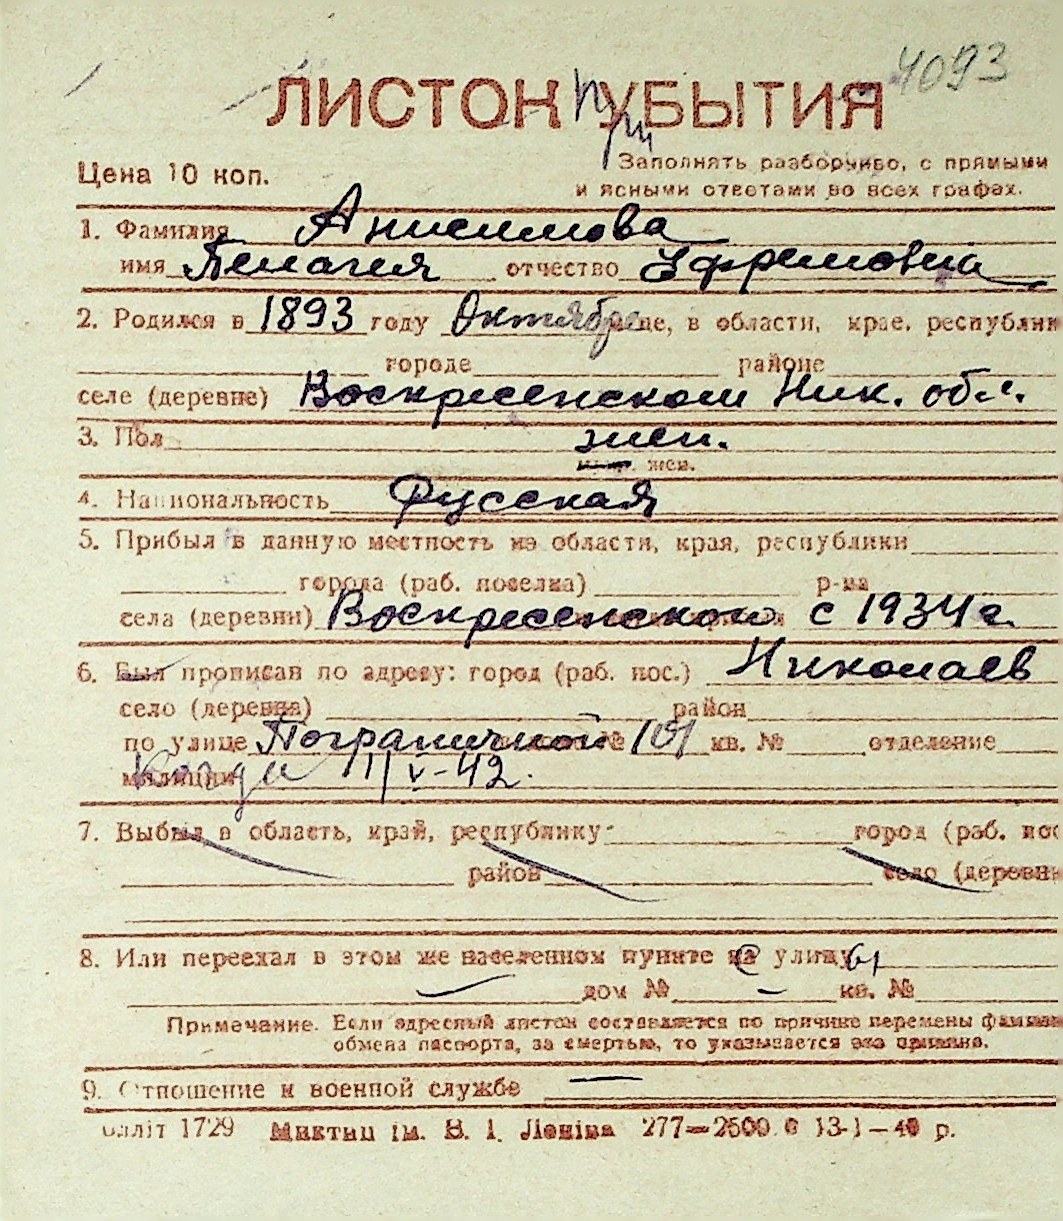 4093
ЛИСТОК УБЫТИЯ
Цена 10 коп.
Заполнять разборчиво, с прямыми
и ясными ответами во всех графах.
1. Фамилия Анисимова
имя Пелагея отчество Ефремовна
2. Родился в 1893 году Октябре м-це, в области, крае, республик
городе районе
селе (деревне) Воскресенском Ник. обл.
3. Пол жен.
жен.
4. Национальность Русская
5. Прибыл в данную местность из области, края, республики
города (раб. поселка) р-на
села (деревни) Воскресенского с 1934 г.
6. Был прописан по адресу: город (раб. пос.) Николаев
село (деревня) район
по улице Пограничной № 101 кв. № отделение
милиции Когда 11/V-42.
7. Выбыл в область, край, республику город (раб. пос
район село (деревн
8. Или переехал в этом же населенном пункте на улицу
дом № — кв. №
Примечание. Если адресный листок составляется по причине перемены фамилии
обмена паспорта, за смертью, то указывается эта причина.
9. Отношение к военной службе —
1729 ім. В. І. Леніна 277—2500 13-1-40 р.